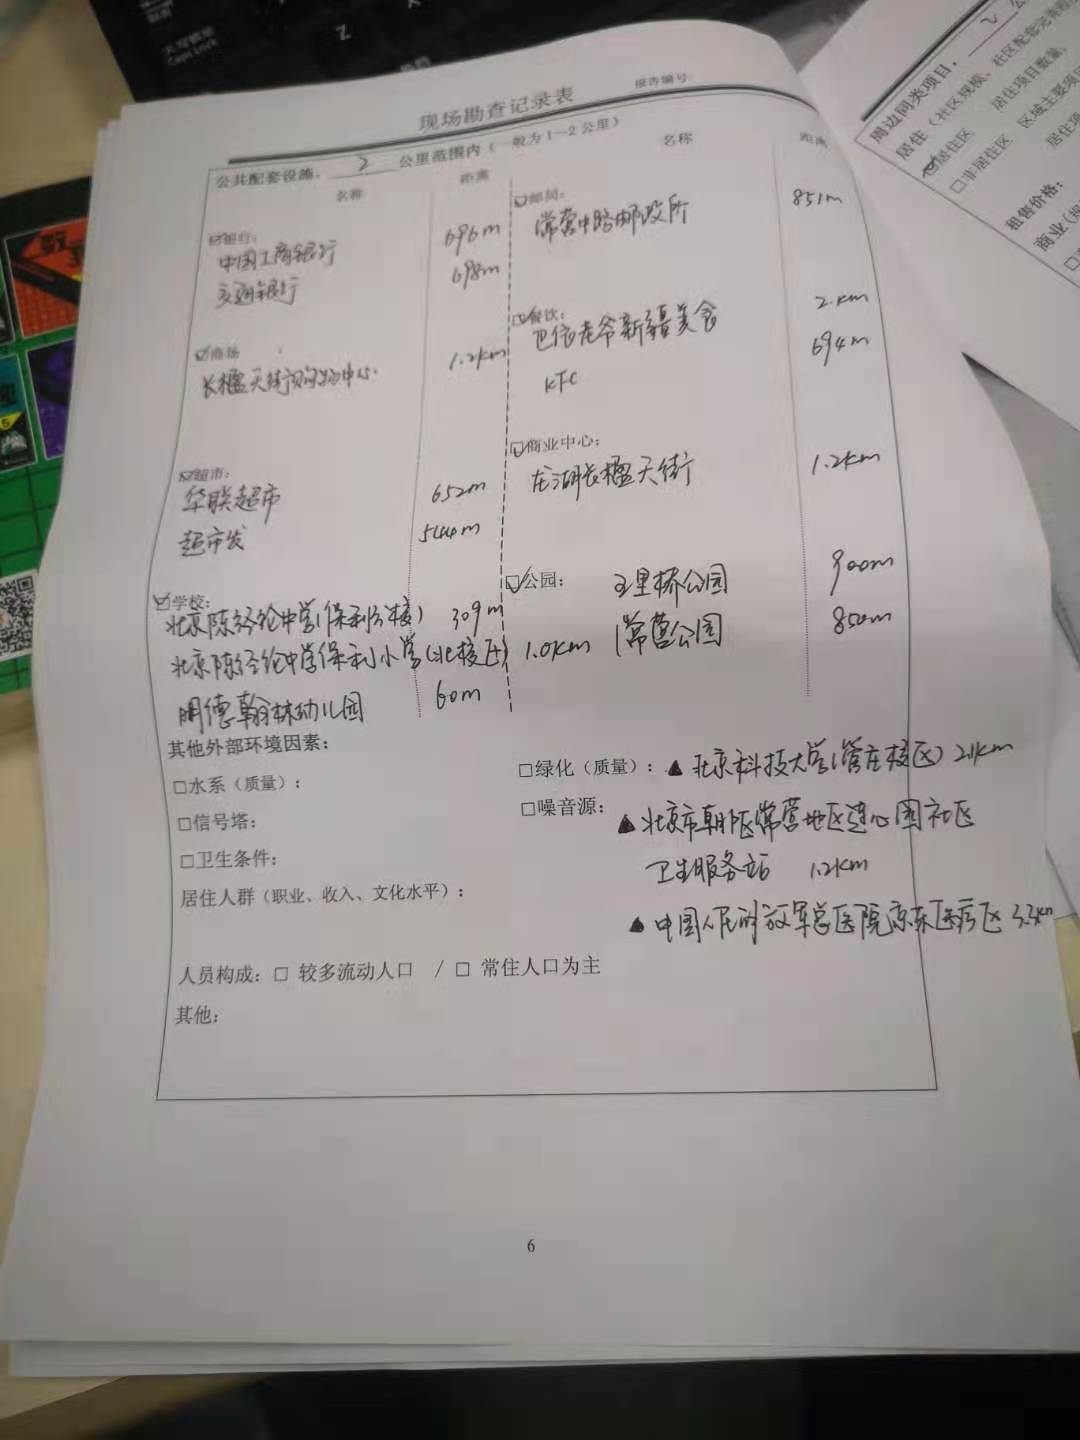 Caps Lock
Z
X
现场勘查记录表
报告编号:
公共配套设施: 2 公里范围内(一般为1-2公里)
名称 距离
☑银行:
中国工商银行 696m
交通银行 698m
☑商场
长楹天街购物中心 1.2km
☑超市:
华联超市 652m
超市发 544m
☑学校:
北京陈经纶中学(保利分校) 309m
北京陈经纶中学保利小学(北校区) 1.0km
明德翰林幼儿园 60m
名称 距离
☑邮局:
常营中路邮政所 851m
☑餐饮:
巴依老爷新疆美食 2.km
KFC 694m
☑商业中心:
龙湖长楹天街 1.2km
☑公园: 五里桥公园 900m
常营公园 850m
其他外部环境因素:
□水系(质量):
□绿化(质量): ▲北京科技大学(管庄校区) 2.1km
□信号塔:
□噪音源: ▲北京市朝阳区常营地区连心园社区
卫生服务站 1.2km
□卫生条件:
居住人群(职业、收入、文化水平):
▲中国人民解放军总医院京东医疗区 3.3km
人员构成: □ 较多流动人口 / □ 常住人口为主
其他:
6
周边同类项目, 2
居住(社区规模、社区配套完善程度
☑居住区 居住项目数量,
□非居住区 区域主要项目
居住项
租售价格:
商业(规